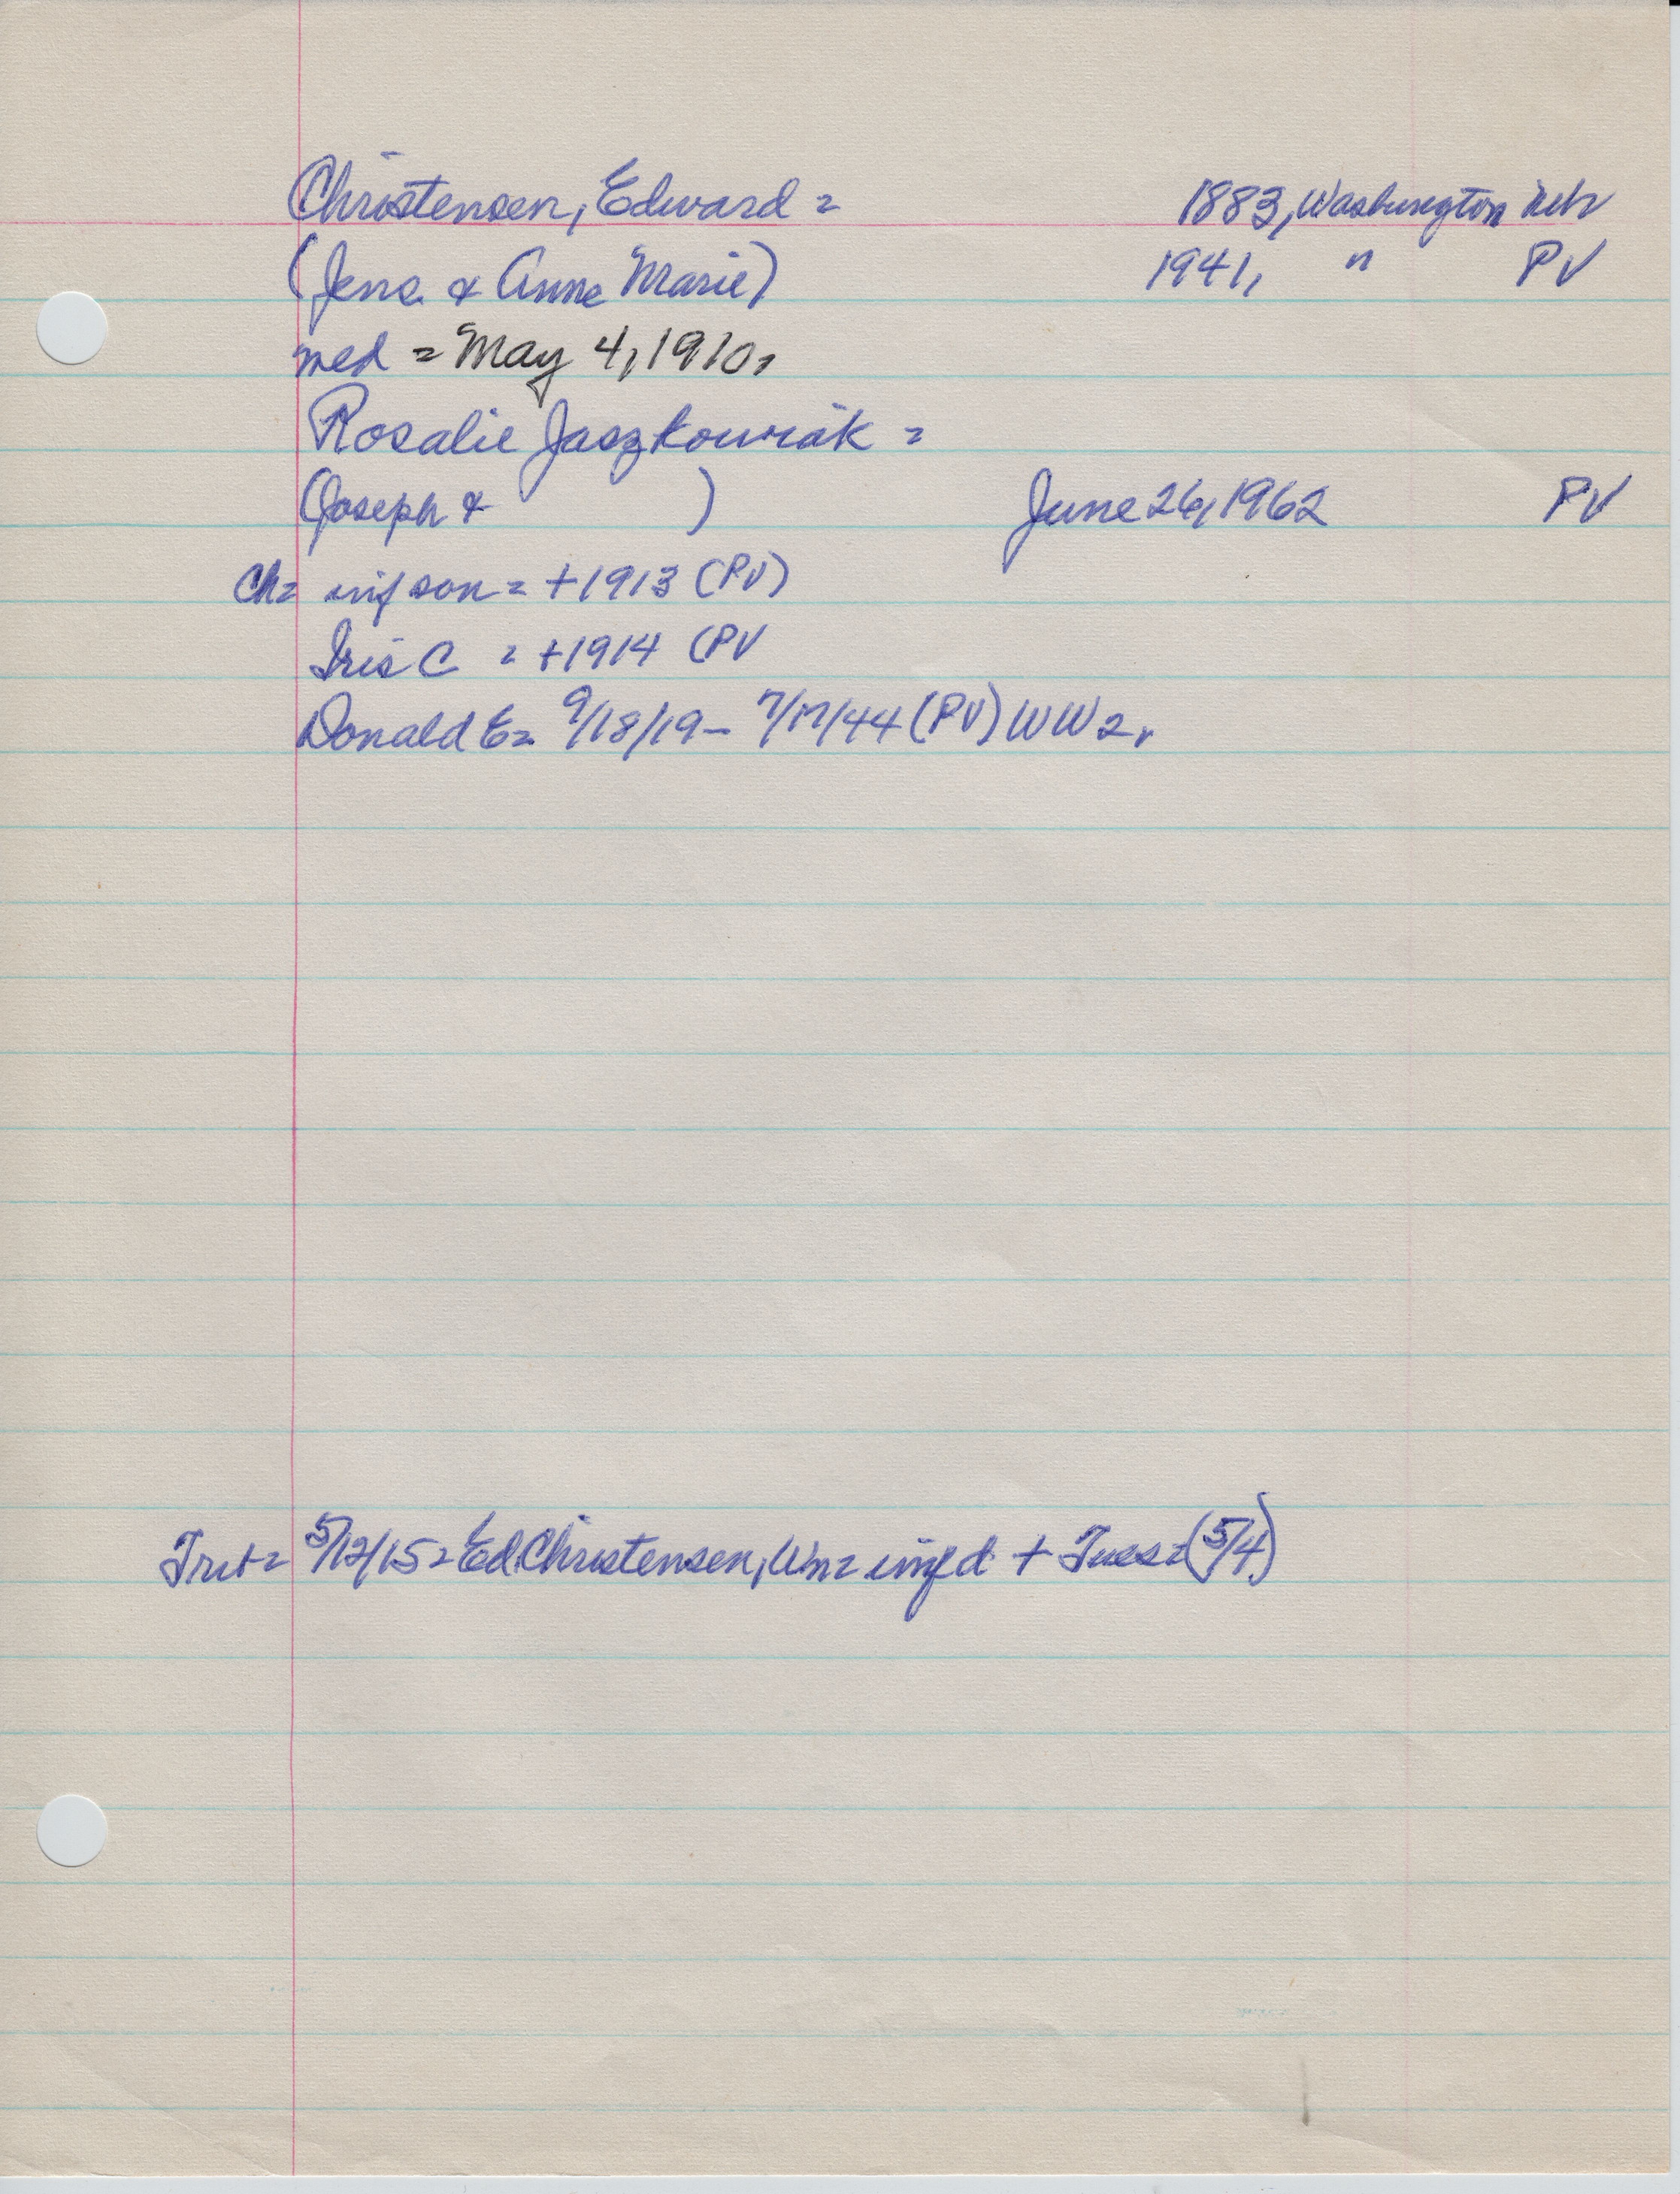 Christensen, Edward = 1883, Washington Neb
(Jens & Anne Marie) 1941, " PV
med = May 4, 1910,
Rosalie Jaszkowiak =
(Joseph & ) June 26, 1962 PV
Ch= inf son = +1913 (PV)
Iris C = +1914 (PV
Donald E= 9/18/19 – 7/17/44 (PV) WW2,
Trib= 5/12/15 = Ed Christensen, Wn= inf d + Tues= (5/4)